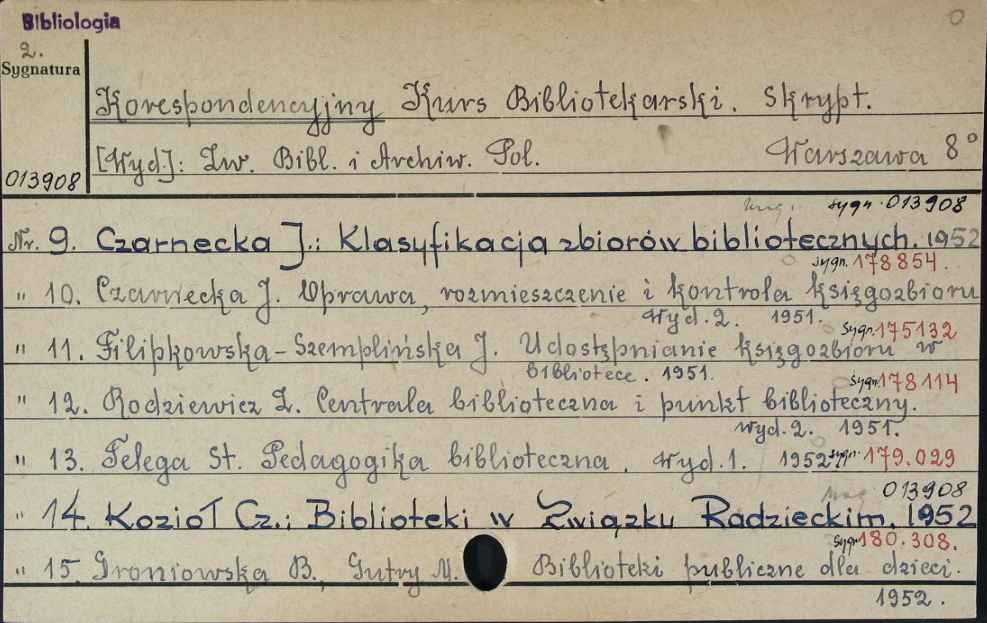 Bibliologia
0
2.
Sygnatura
Korespondencyjny Kurs Bibliotekarski. Skrypt.
[Wyd.]: Zw. Bibl. i Archiw. Pol. Warszawa 8°
013908
sygn. 013908
Nr. 9. Czarnecka J.: Klasyfikacja zbiorów bibliotecznych. 1952
sygn. 178854.
" 10. Czarnecka J. Oprawa, rozmieszczenie i kontrola księgozbioru
Wyd. 2. 1951.
sygn. 175132
" 11. Filipkowska-Szemplińska J. Udostępnianie księgozbioru w
bibliotece. 1951.
sygn. 178114
" 12. Rodziewicz Z. Centrala biblioteczna i punkt biblioteczny.
Wyd. 2. 1951.
" 13. Telega St. Pedagogika biblioteczna. Wyd. 1. 1952 sygn. 179.029
013908
" 14. Kozioł Cz.: Biblioteki w Związku Radzieckim. 1952
sygn. 180.308.
" 15. Groniowska B., Gutry M. Biblioteki publiczne dla dzieci.
1952.